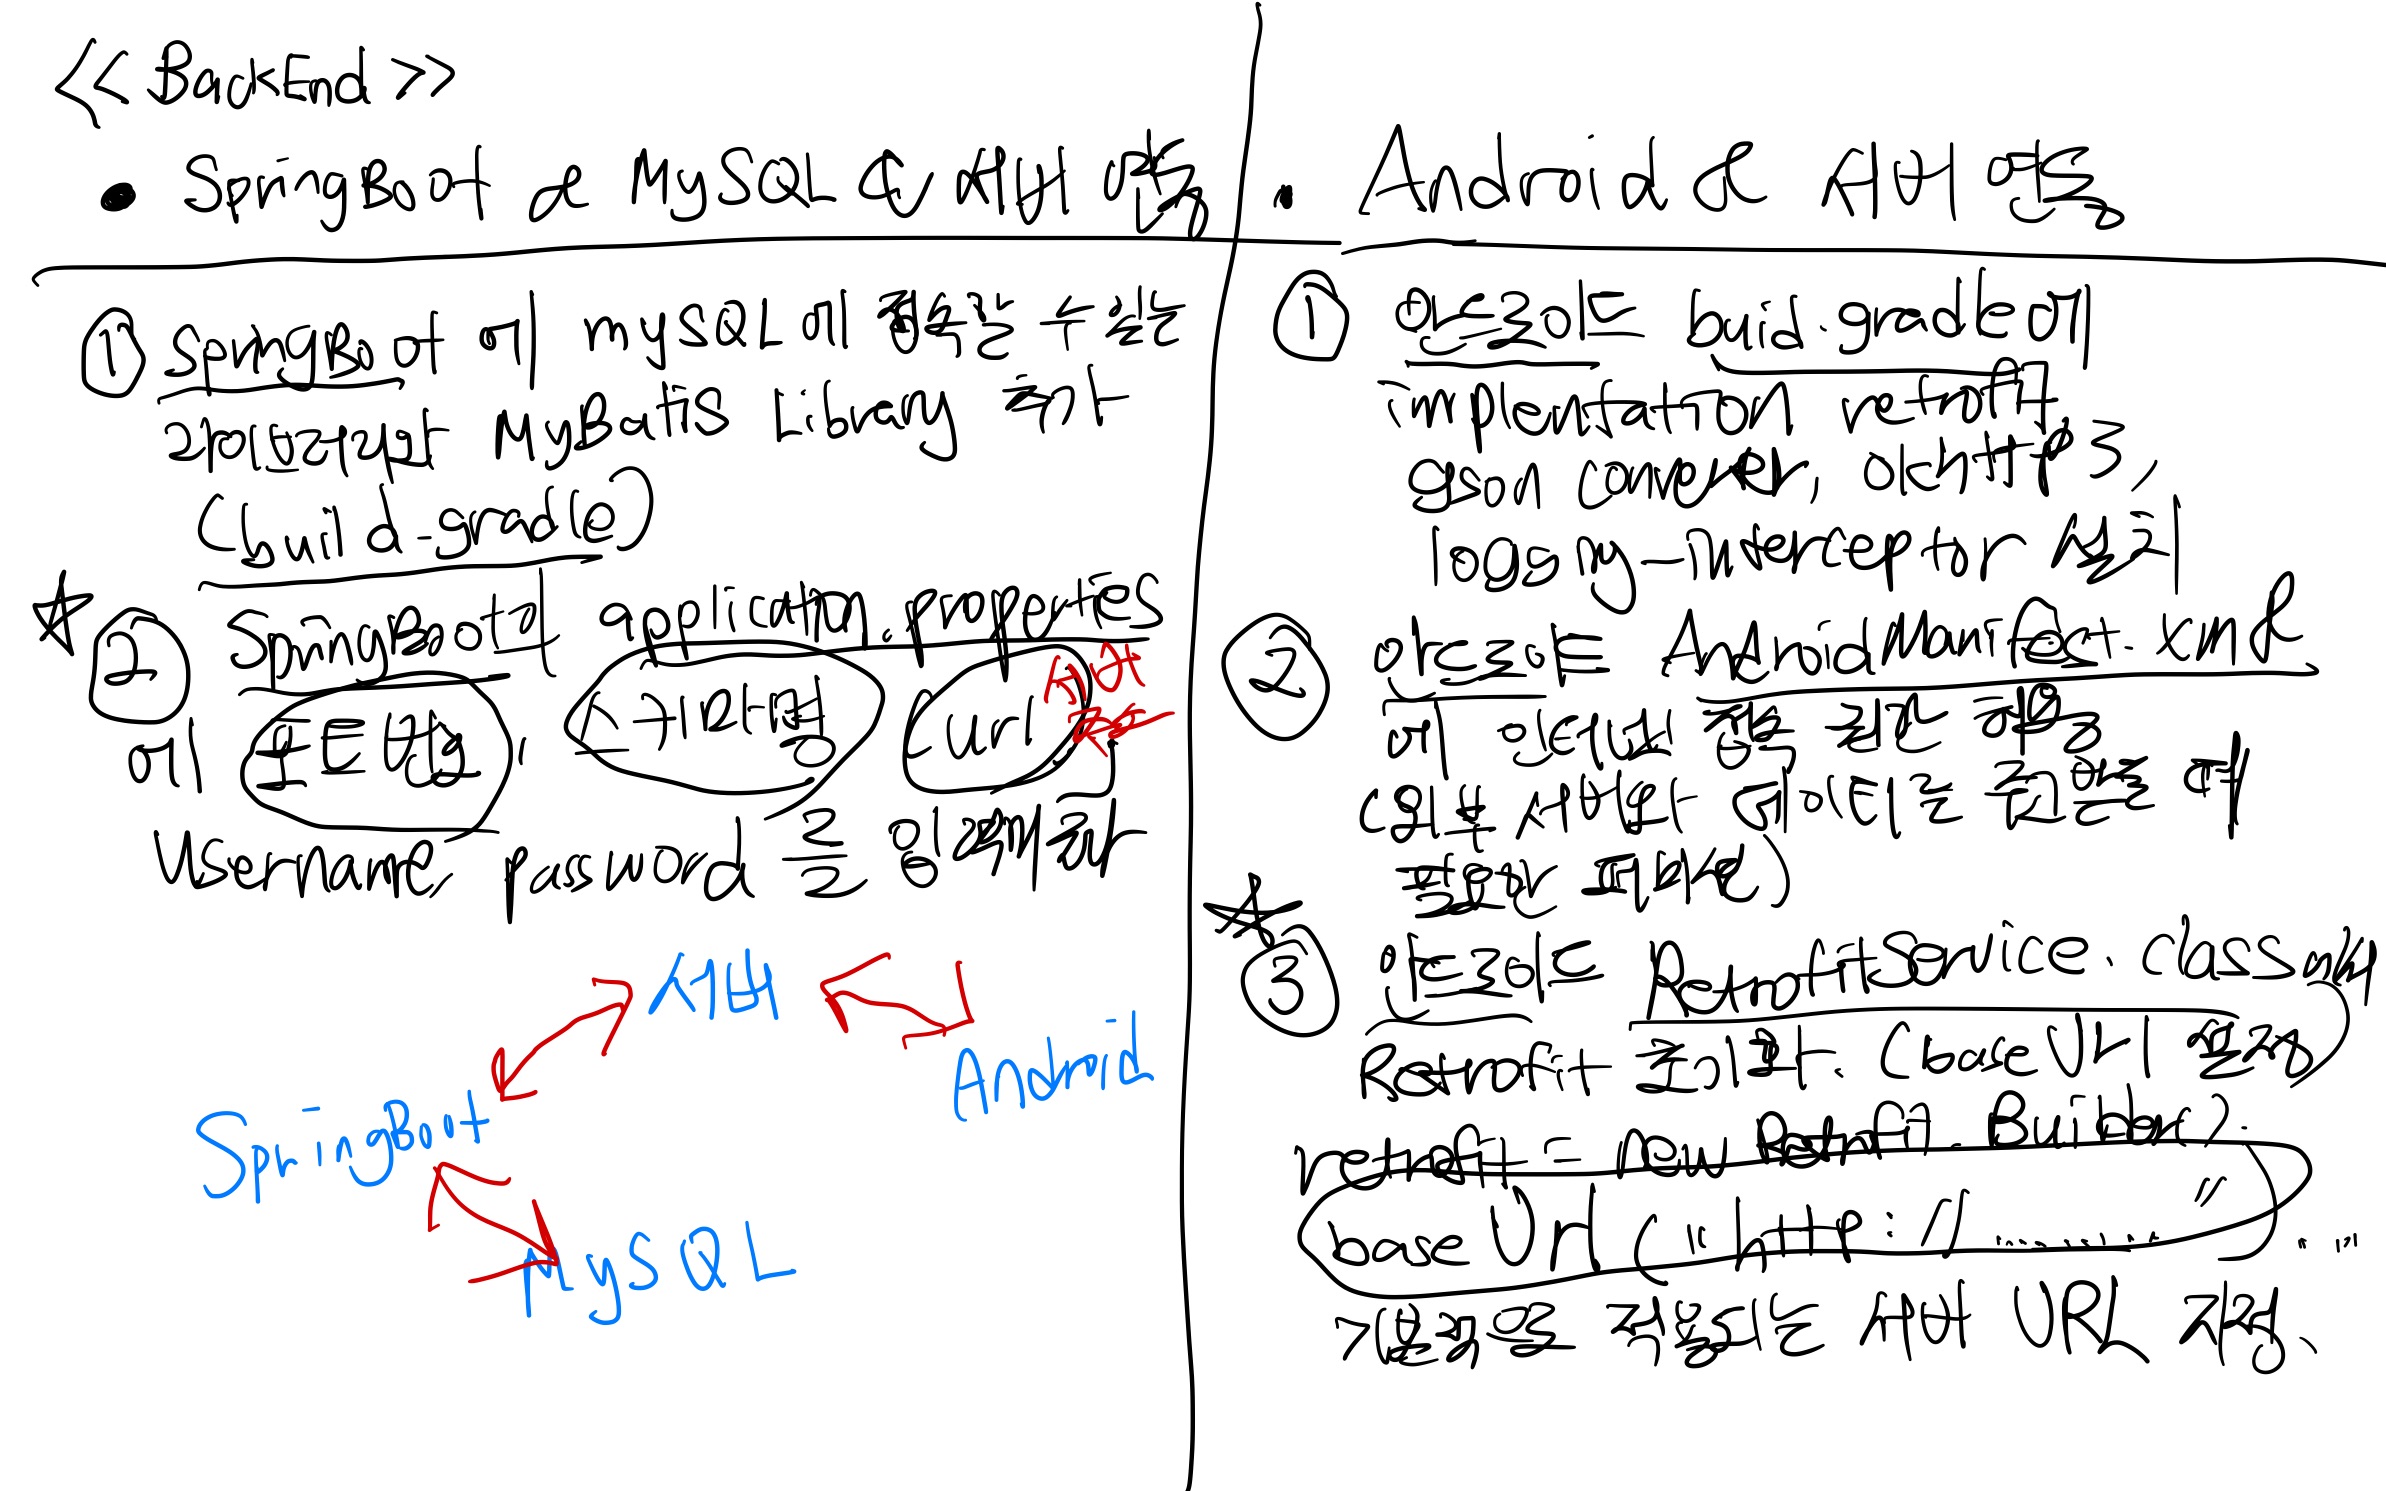 << BackEnd >>
• SpringBoot & MySQL & 서버 연동
① SpringBoot 에 mySQL 에 접속할 수 있는
라이브러리 MyBatis Library 추가
(build.gradle)
② SpringBoot의 application.properties
에 포트번호, 스키마명, url 서버
주소
username, password 를 일치시킨다
서버
Android
SpringBoot
MySQL
• Android & 서버 연동
① 안드로이드 buid.gradle에
implementation retrofit
gson converter, okhttp3,
logging-interceptor 설치
② 안드로이드 AndroidManifest.xml
에 인터넷 허용 권한 부여
(외부 서버와 데이터를 주고받을 때
필요한 권한)
③ 안드로이드 RetrofitService.class에서
Retrofit 초기화. (base Url 설정)
retrofit = new Retrofit.Builder().
base Url ( "http://.............") ...
기본적으로 적용되는 서버 URL 지정.